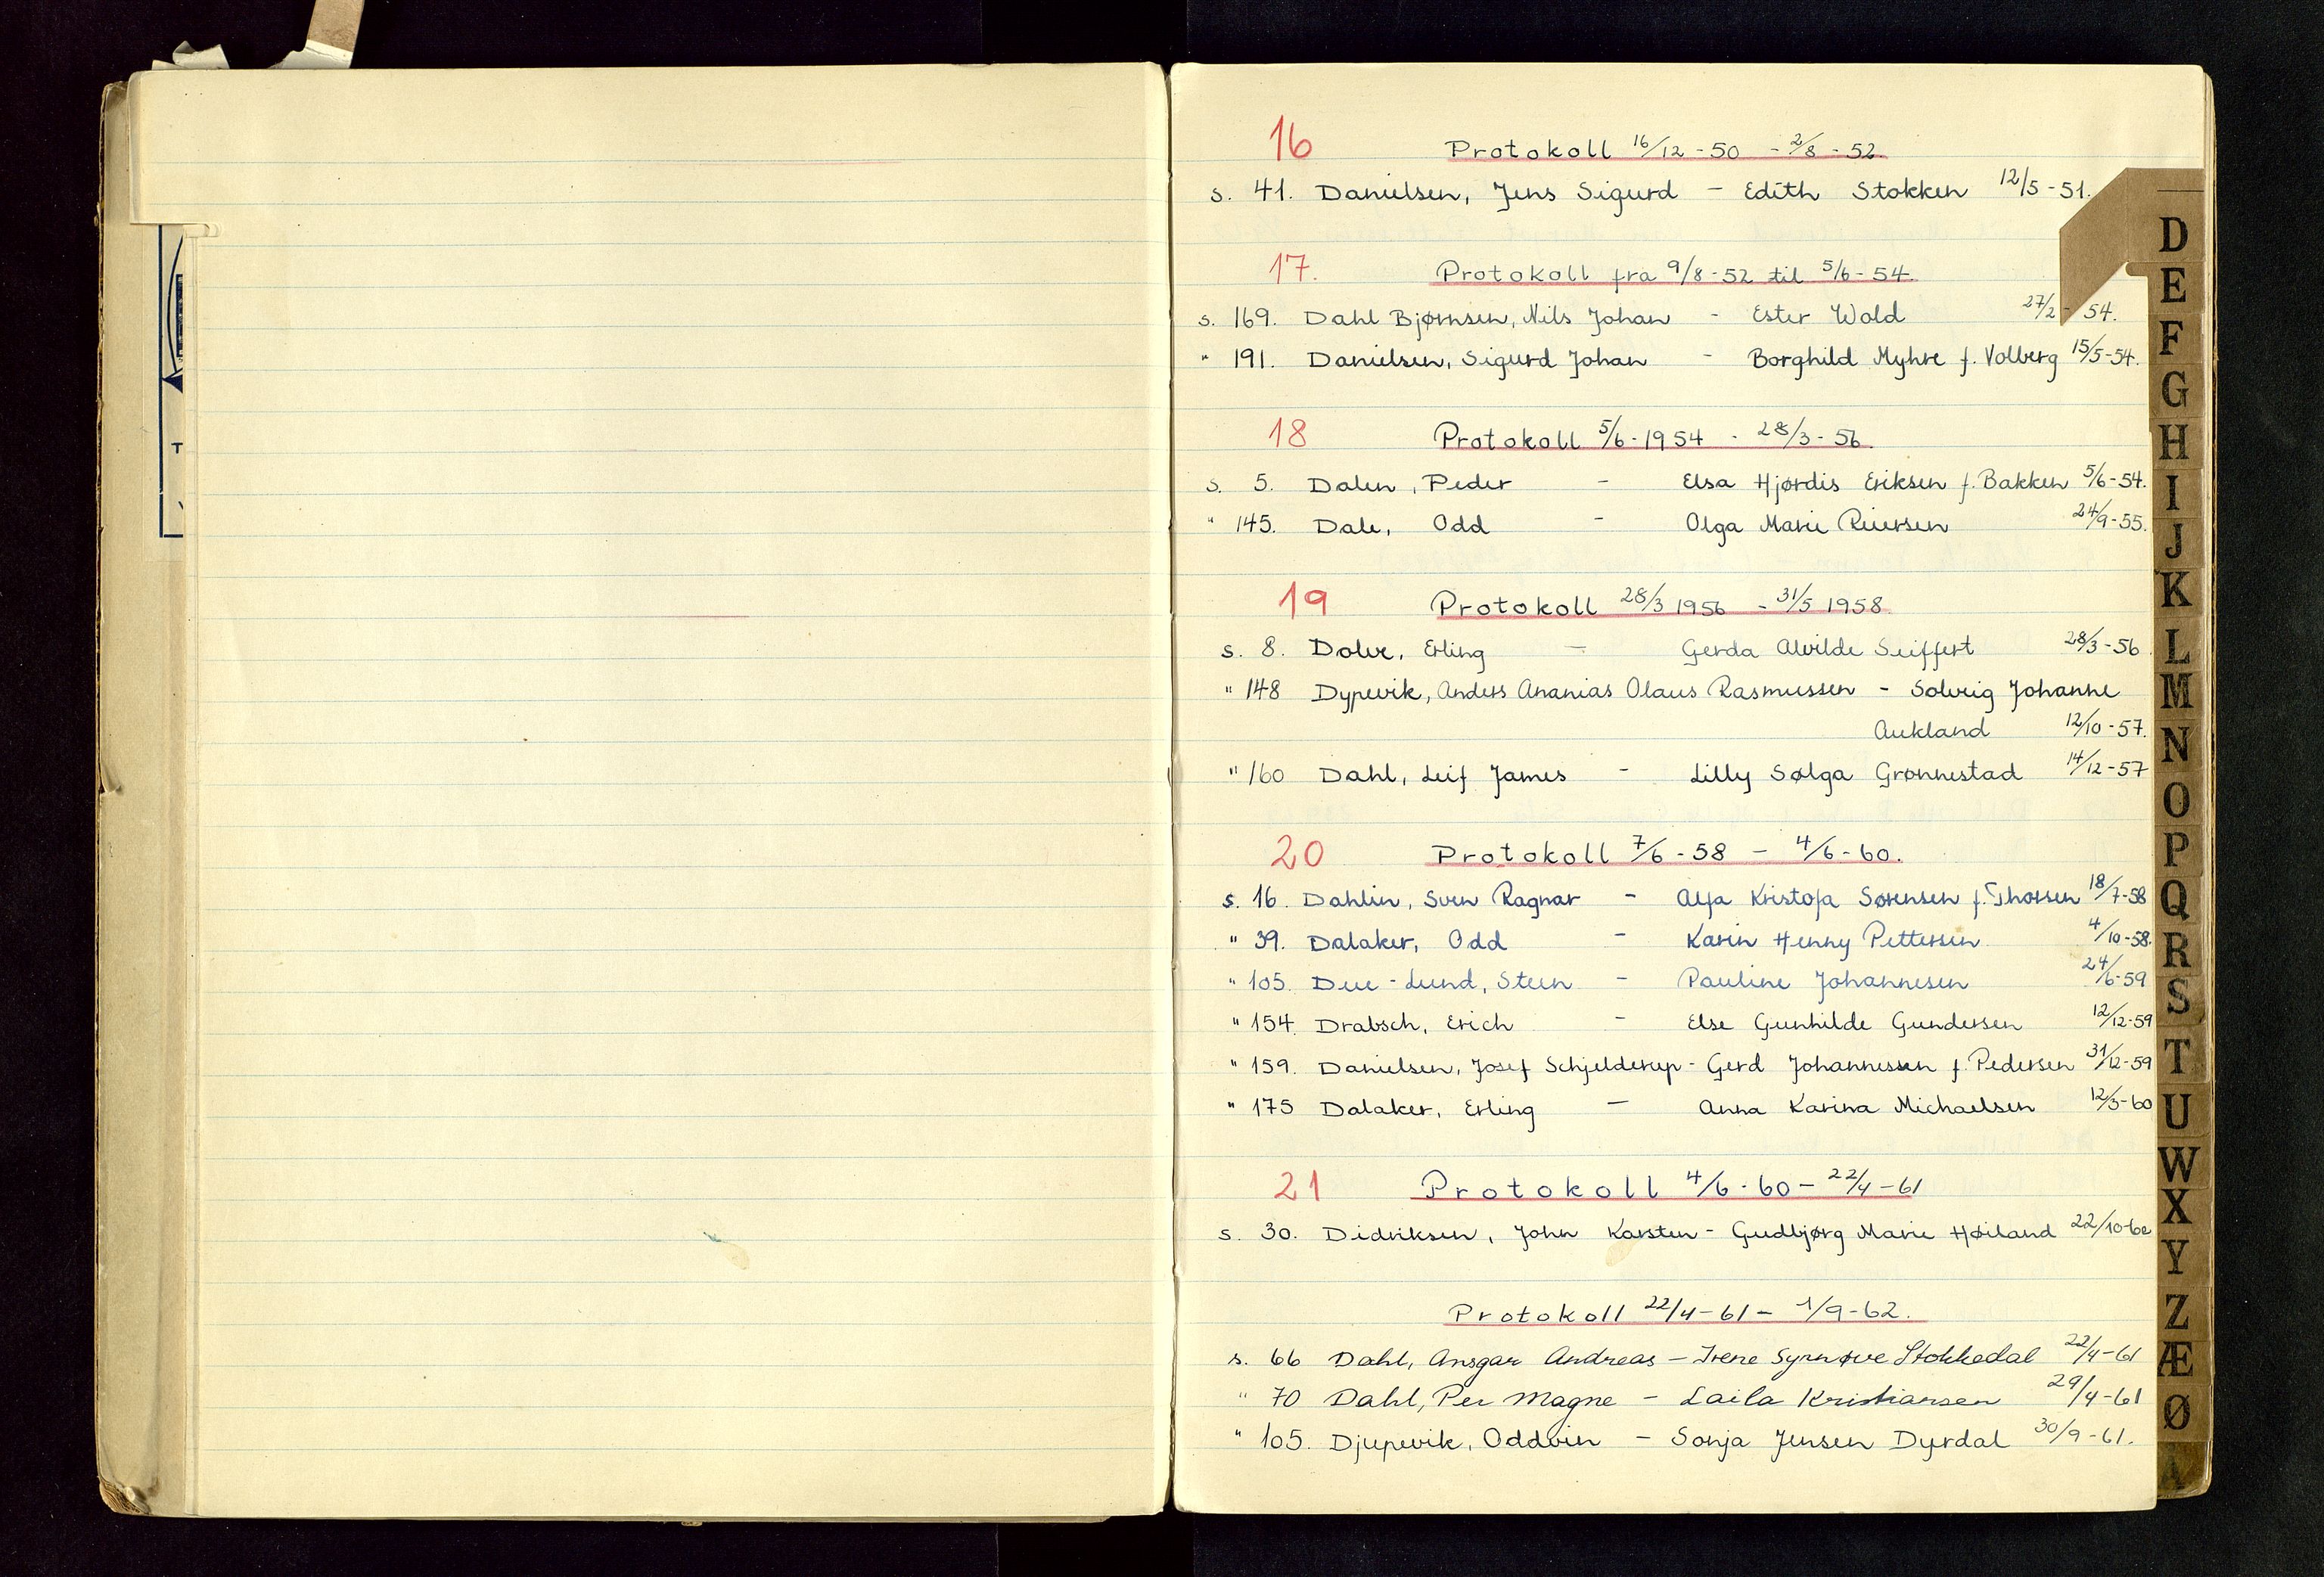 16 Protokoll 16/12-50 - 2/8-52.
s. 41. Danielsen, Jens Sigurd - Edith Stokken 12/5-51.
17. Protokoll fra 9/8-52 til 5/6-54.
s. 169. Dahl Bjørnsen, Nils Johan - Ester Wold 27/2-54.
" 191. Danielsen, Sigurd Johan - Borghild Myhre f. Volberg 15/5-54.
18 Protokoll 5/6-1954 - 28/3-56.
s. 5. Dalen, Peder - Elsa Hjørdis Eriksen f. Bakken 5/6-54.
" 145. Dale, Odd - Olga Marie Reiersen 24/9-55.
19 Protokoll 28/3 1956 - 31/5 1958.
s. 8. Dolve, Erling - Gerda Alvilde Seiffert 28/3-56.
" 148 Dypevik, Anders Ananias Olaus Rasmussen - Solveig Johanne
Aukland 12/10-57.
" 160 Dahl, Leif James - Lilly Sølga Grønnestad 14/12-57
20 Protokoll 7/6-58 - 4/6-60.
s. 16. Dahlin, Sven Ragnar - Alfa Kristofa Sørensen f. Thorsen 18/7-58
" 39. Dalaker, Odd - Karin Henny Pettersen 4/10-58.
" 105. Due-Lund, Steen - Pauline Johannesen 24/6-59
" 154. Drabsch, Erich - Else Gunhilde Gundersen 12/12-59
" 159. Danielsen, Josef Schjelderup - Gerd Johannessen f. Pedersen 31/12-59
" 175 Dalaker, Erling - Anna Karina Michaelsen 12/3-60
21 Protokoll 4/6-60 - 22/4-61
s. 30. Didriksen, John Karsten - Gudbjørg Marie Høiland 22/10-60
Protokoll 22/4-61 - 1/9-62.
s. 66 Dahl, Ansgar Andreas - Irene Synnøve Stokkedal 22/4-61
" 70 Dahl, Per Magne - Laila Kristiansen 29/4-61
" 105. Djupevik, Oddvin - Sonja Jensen Dyrdal 30/9-61.
D
E
F
G
H
I
J
K
L
M
N
O
P
Q
R
S
T
U
W
X
Y
Z
Æ
Ø